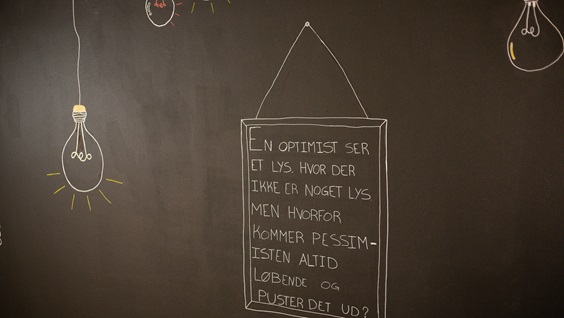 EN OPTIMIST SER
ET LYS. HVOR DER
IKKE ER NOGET LYS
MEN HVORFOR
KOMMER PESSIM-
ISTEN ALTID
LØBENDE OG
PUSTER DET UD?